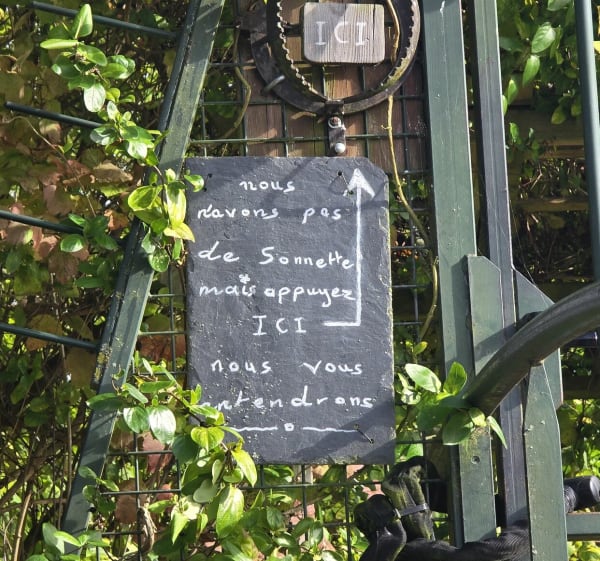 ICI
nous
n'avons pas
de Sonnette
mais appuyez
ICI
nous vous
entendrons